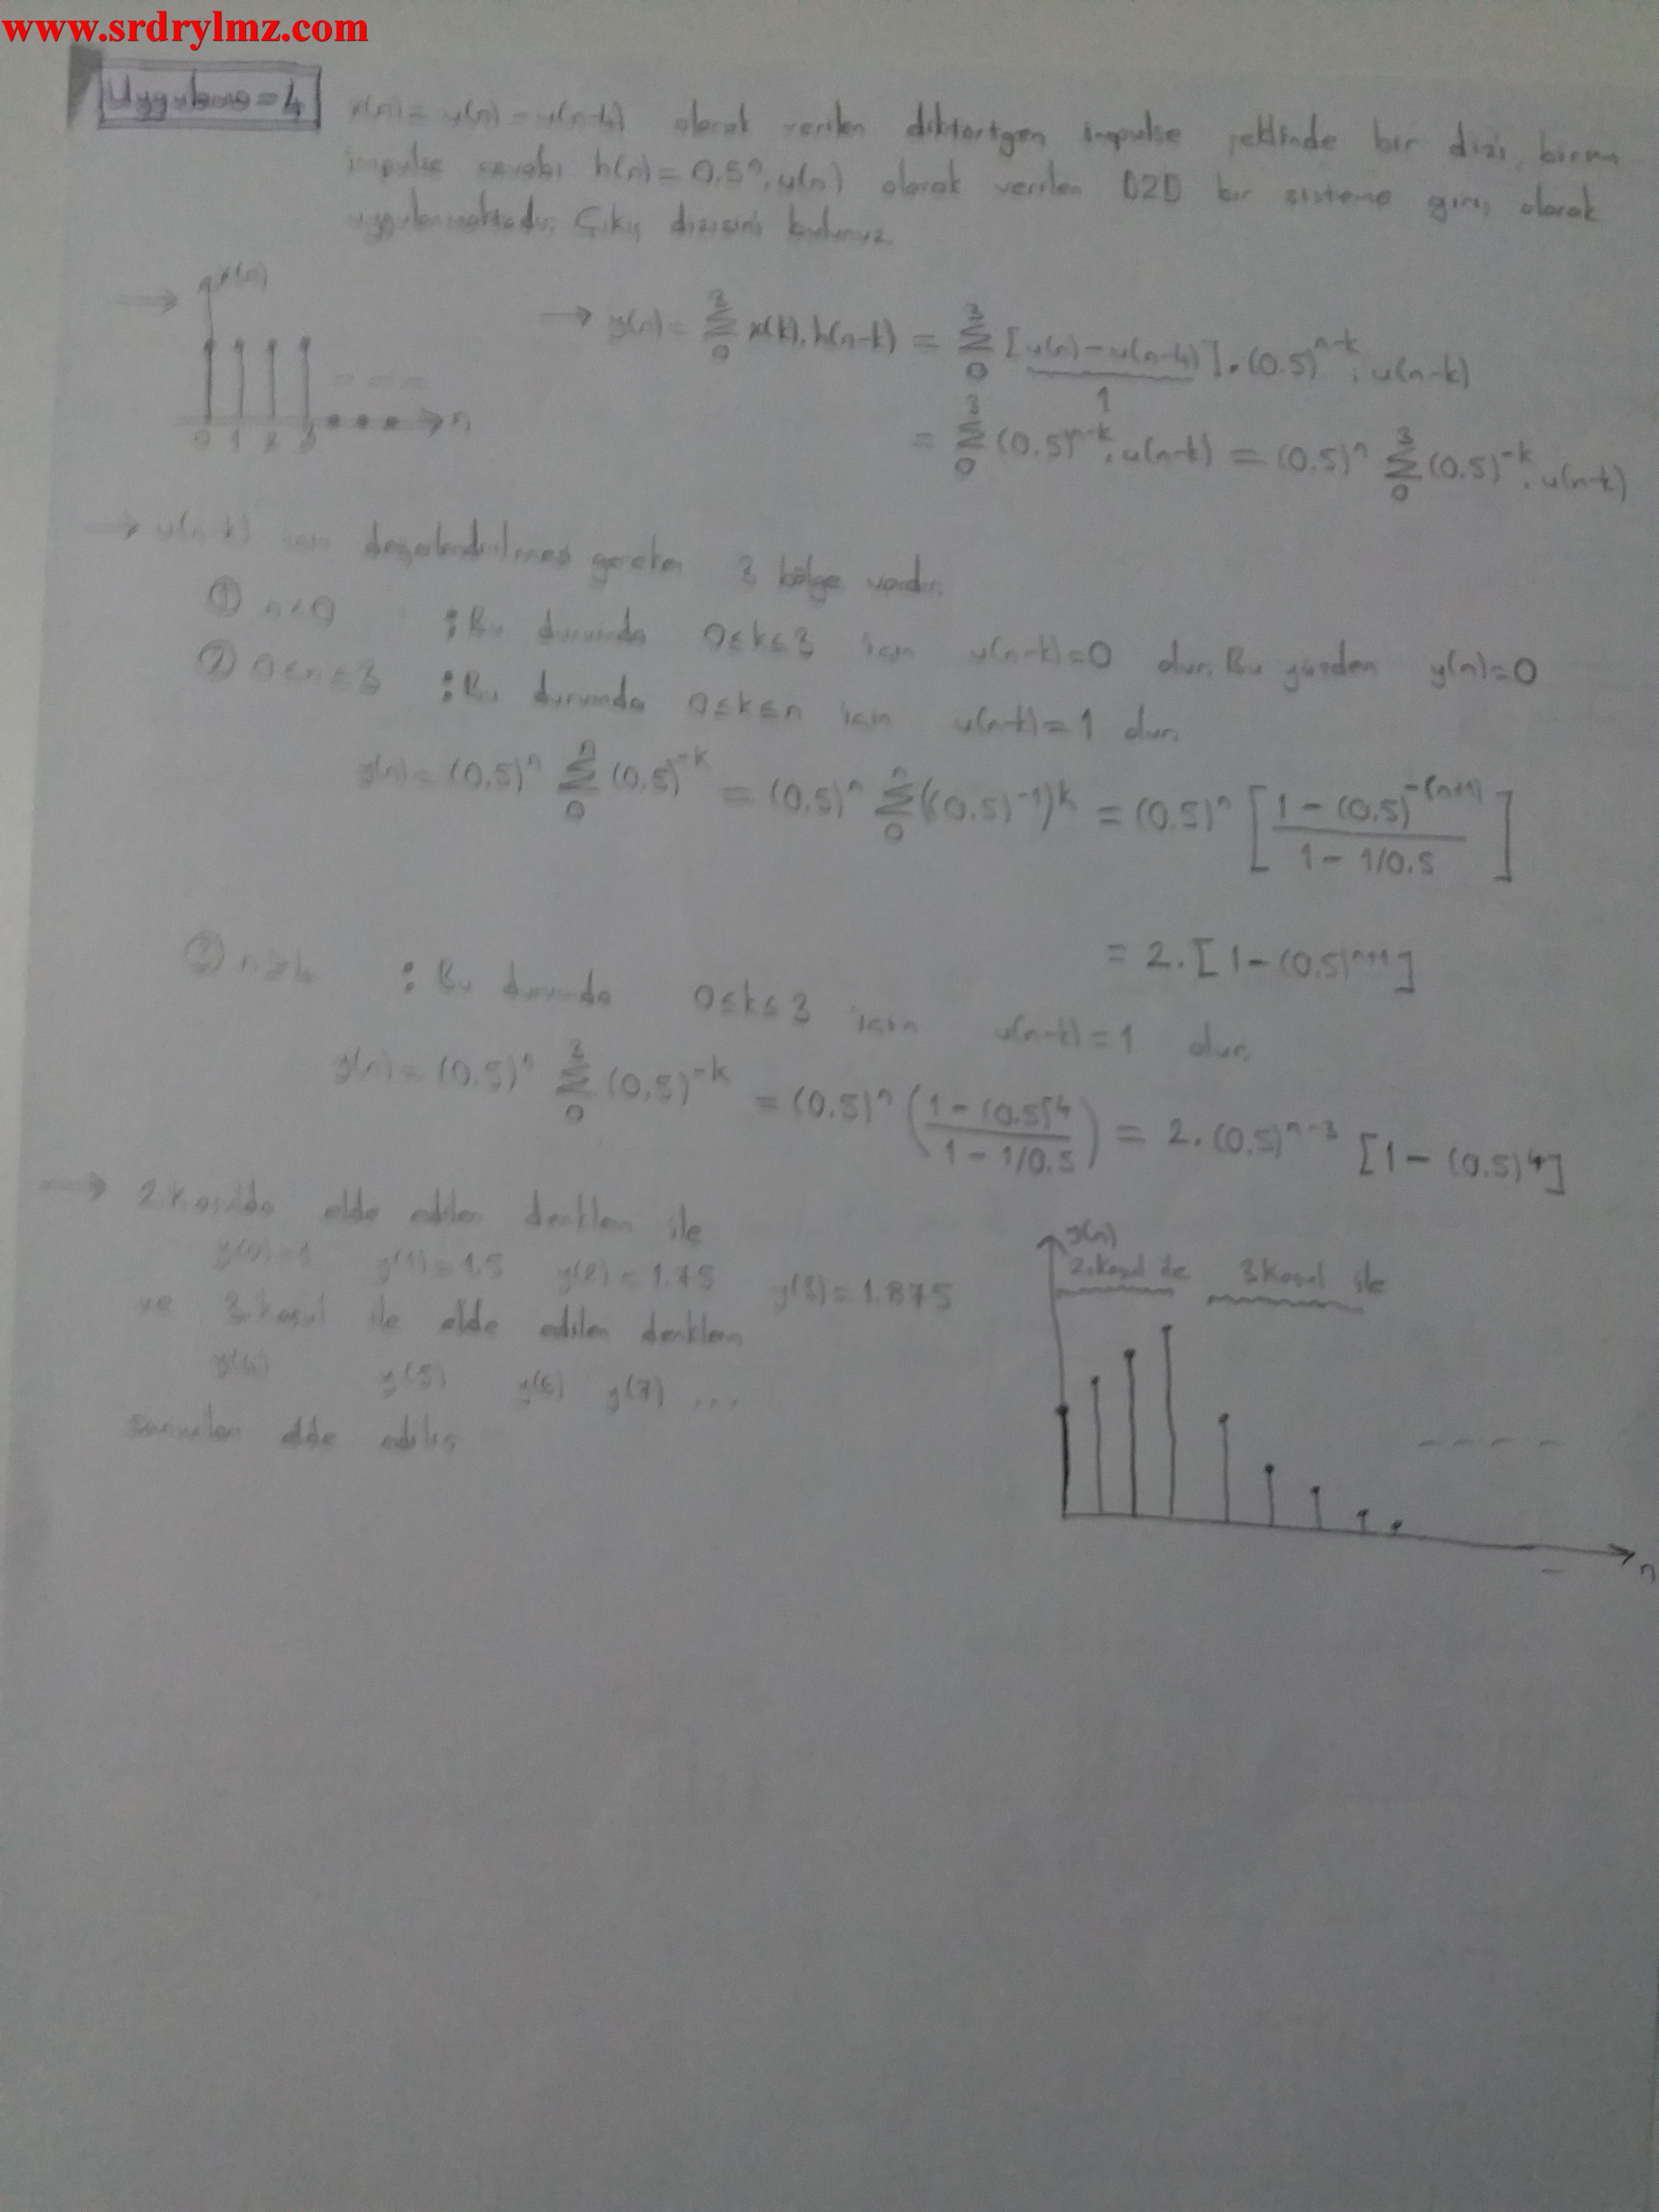 www.srdrylmz.com
Uygulama=4
x(n)= u(n)-u(n-4) olarak verilen dikdörtgen impulse şeklinde bir dizi, birim
impulse cevabı h(n)=0,5ⁿ.u(n) olarak verilen DZD bir sisteme giriş olarak
uygulanmaktadır. Çıkış dizisini bulunuz.
x(n)
0 1 2 3 n
→ y(n)= 3 Σ 0 x(k).h(n-k) = 3 Σ 0 [u(n)-u(n-4)].(0.5)^n-k.u(n-k)
1
= 3 Σ 0 (0.5)^n-k.u(n-k) = (0.5)^n 3 Σ 0 (0.5)^-k.u(n-k)
→ u(n-k) için değerlendirilmesi gereken 3 bölge vardır.
① n<0 : Bu durumda 0≤k≤3 için u(n-k)=0 dur. Bu yüzden y(n)=0
② 0≤n≤3 : Bu durumda 0≤k≤n için u(n-k)=1 dur.
y(n)= (0,5)^n n Σ 0 (0,5)^-k = (0,5)^n n Σ 0 ((0,5)^-1)^k = (0.5)^n [ 1-(0,5)^-(n+1) / 1-1/0.5 ]
= 2.[1-(0,5)^n+1]
③ n≥4 : Bu durumda 0≤k≤3 için u(n-k)=1 dur.
y(n)= (0,5)^n 3 Σ 0 (0,5)^-k = (0,5)^n ( 1-(0.5)^-4 / 1-1/0.5 ) = 2.(0,5)^n-3 [1-(0,5)^4]
→ 2.koşulda elde edilen denklem ile
y(0)=1 y(1)=1.5 y(2)=1.75 y(3)=1.875
ve 3.koşul ile elde edilen denklem
y(4) y(5) y(6) y(7) ...
sonuçları elde edilir
y(n)
2.koşul ile 3.koşul ile
n